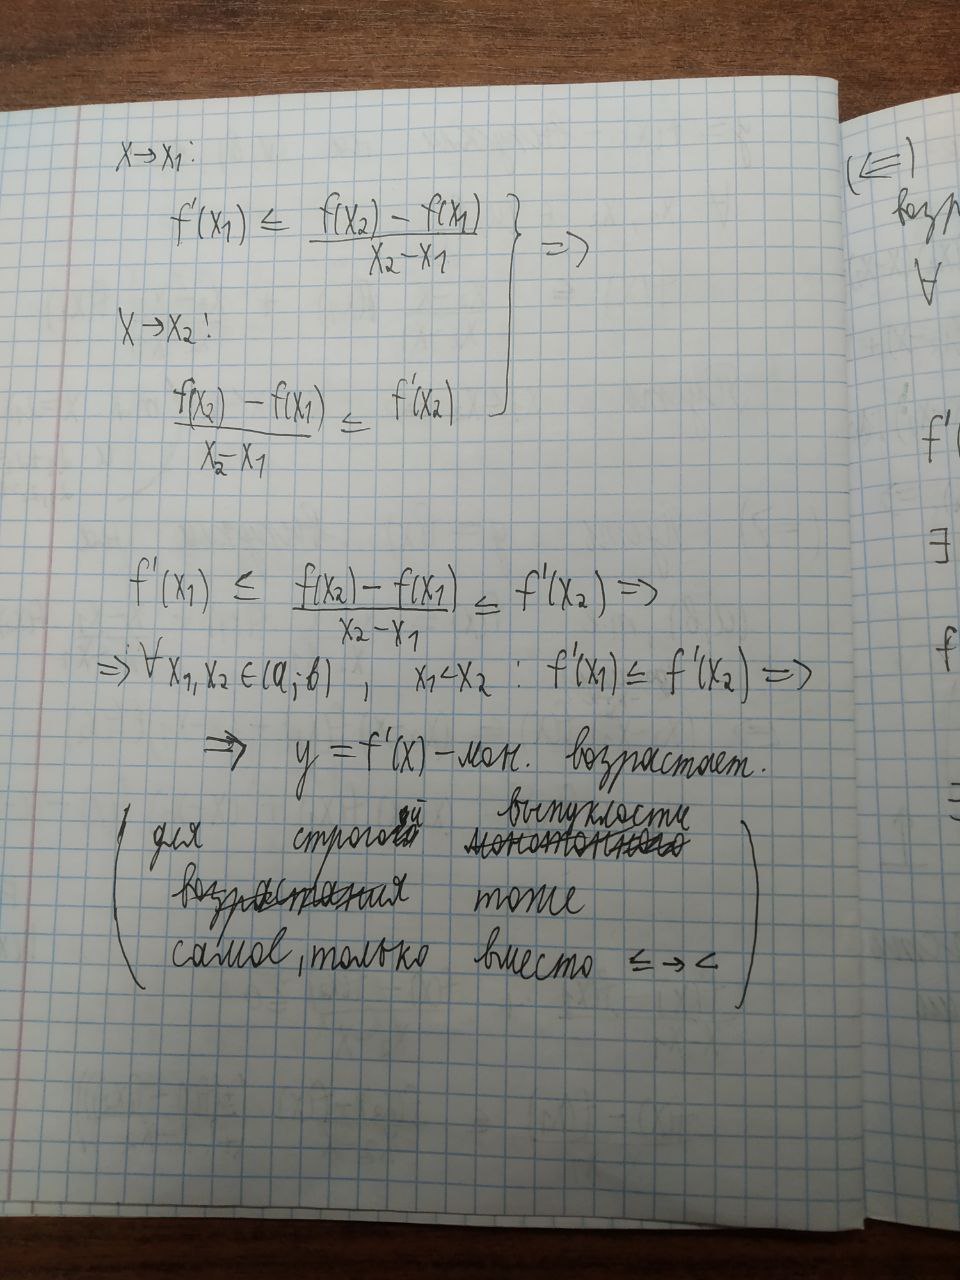 x→x₁:
f'(x₁) ≤ (f(x₂) − f(x₁))/(x₂−x₁)
} ⇒
x→x₂:
(f(x₂) − f(x₁))/(x₂−x₁) ≤ f'(x₂)
f'(x₁) ≤ (f(x₂) − f(x₁))/(x₂−x₁) ≤ f'(x₂) ⇒
⇒ ∀ x₁, x₂ ∈ (a; b) , x₁<x₂ : f'(x₁) ≤ f'(x₂) ⇒
⇒ y = f'(x) – мон. возрастает.
(для строгой выпуклости
тоже
самое, только вместо ≤ → <)
(⇐)
возр
∀
f'(
∃
f